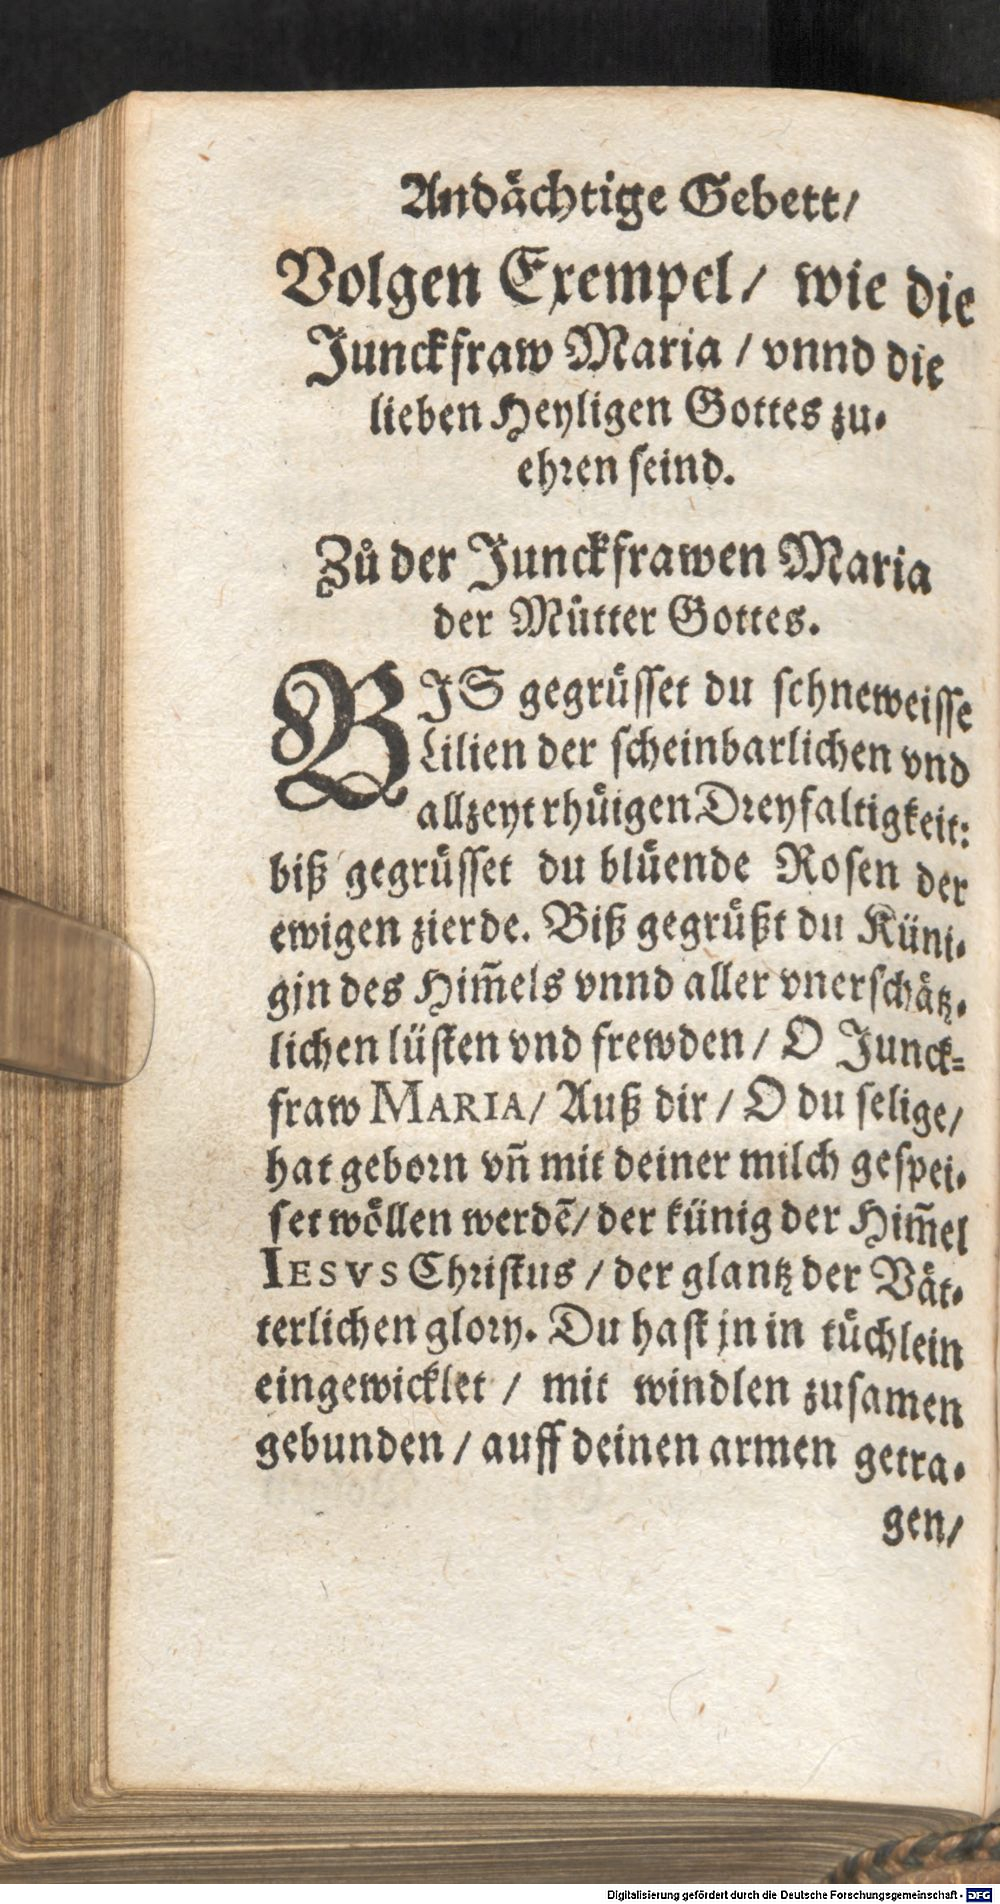 Andächtige Gebett/
Volgen Exempel/ wie die
Junckfraw Maria / vnnd die
lieben Heyligen Gottes zu-
ehren seind.
Zů der Junckfrawen Maria
der Mütter Gottes.
BIS gegrüsset du schneweisse
Lilien der scheinbarlichen vnd
allzeyt rhüigen Dreyfaltigkeit:
biß gegrüsset du blüende Rosen der
ewigen zierde. Biß gegrüßt du Küni-
gin des Him̃els vnnd aller vnerschätz-
lichen lüsten vnd frewden / O Junck-
fraw MARIA/ Auß dir / O du selige/
hat geborn vñ mit deiner milch gespei-
set wöllen werdẽ/ der künig der Him̃el
IESVS Christus / der glantz der Vät-
terlichen glory. Du hast jn in tüchlein
eingewicklet / mit windlen zusamen
gebunden / auff deinen armen getra-
gen/
Digitalisierung gefördert durch die Deutsche Forschungsgemeinschaft - DFG